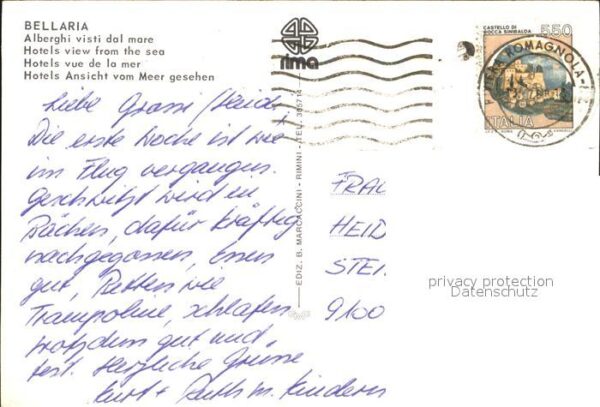 BELLARIA
Alberghi visti dal mare
Hotels view from the sea
Hotels vue de la mer
Hotels Ansicht vom Meer gesehen
rima
CASTELLO DI
ROCCA SINIBALDA
550
ITALIA
ROMAGNOLA
Liebe Grossi / Heidi
Die erste Woche ist wie
im Flug vergangen.
Geschwitzt wird in
Bächen, dafür kräftig
nachgegossen, Essen
gut, Betten wie
Trampoline, schlafen
trotzdem gut und
fest. Herzliche Grüsse
Kurt + Ruth m. Kindern
EDIZ. B. MARCACCINI - RIMINI - TEL. 385714
FRAU
HEID
STEI
9100
privacy protection
Datenschutz